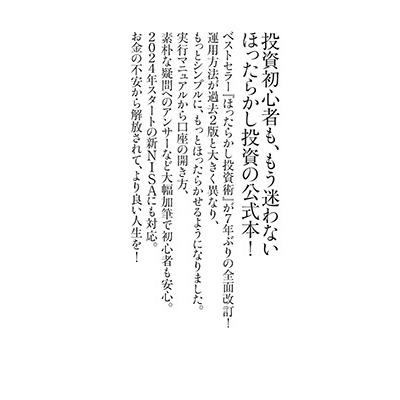 投資初心者も、もう迷わない
ほったらかし投資の公式本！
ベストセラー『ほったらかし投資術』が7年ぶりの全面改訂！
運用方法が過去2版と大きく異なり、
もっとシンプルに、もっとほったらかせるようになりました。
実行マニュアルから口座の開き方、
素朴な疑問へのアンサーなど大幅加筆で初心者も安心。
2024年スタートの新NISAにも対応。
お金の不安から解放されて、より良い人生を！